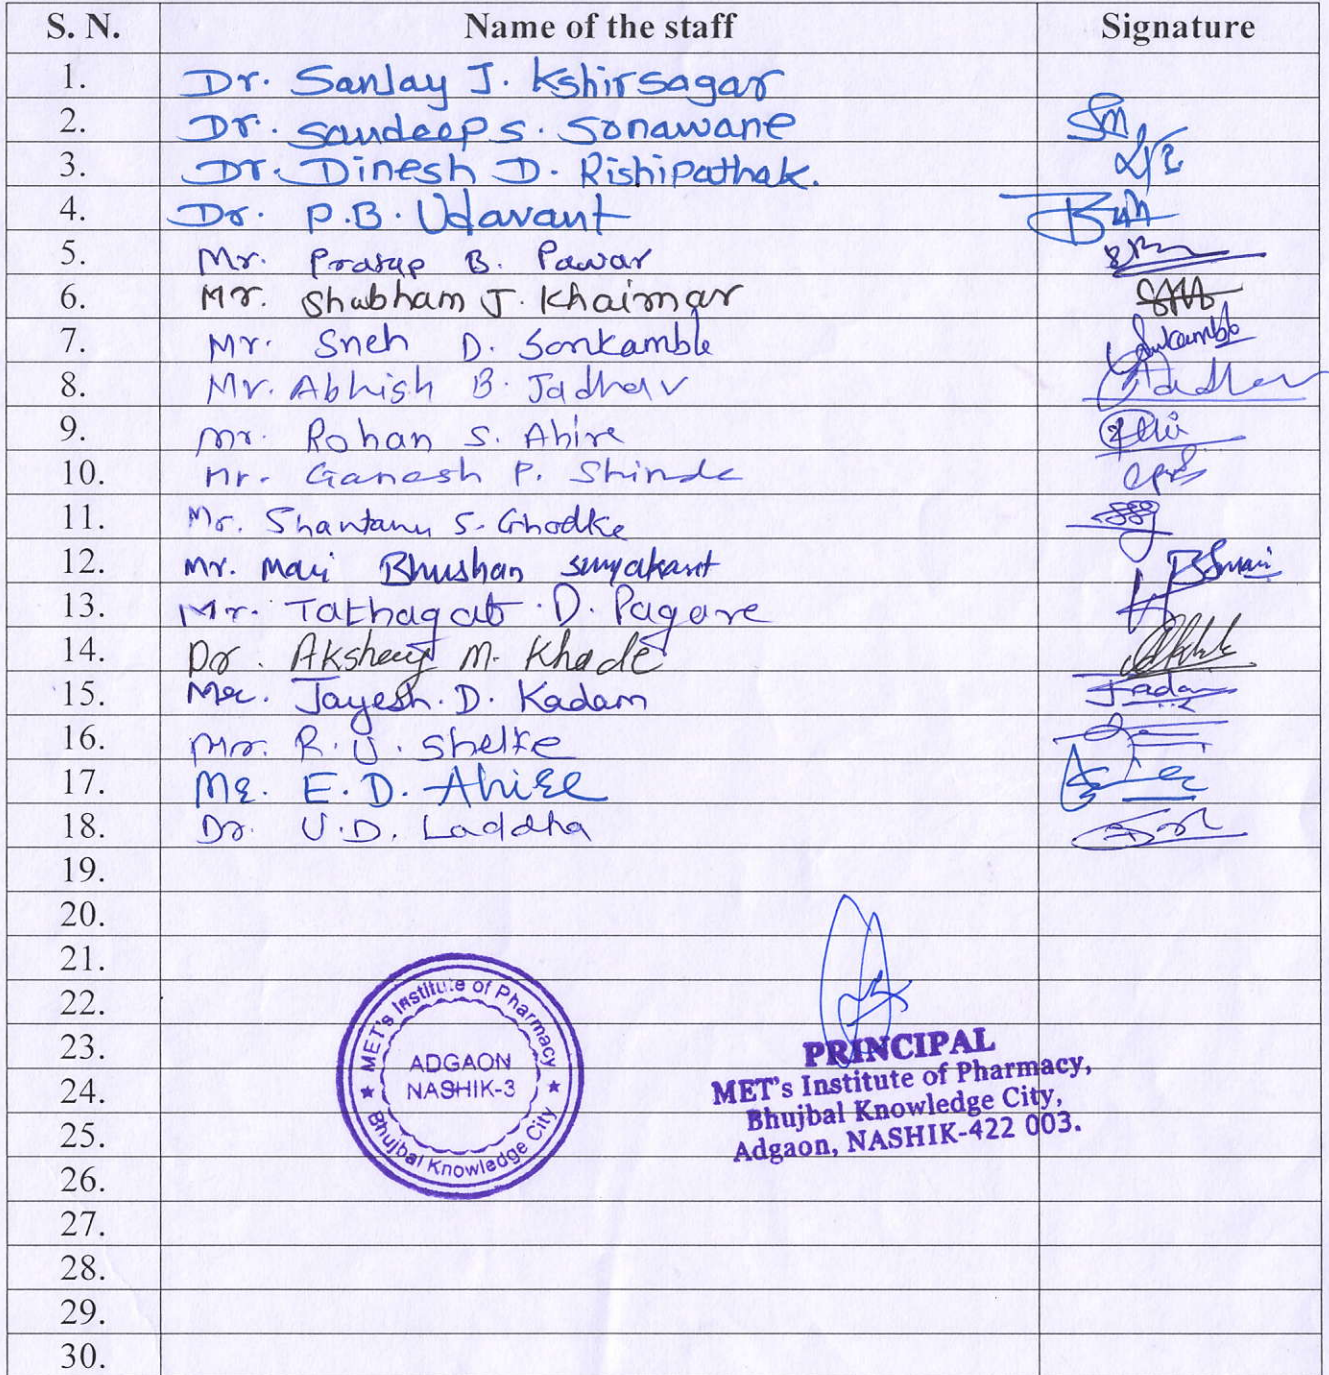 S. N. Name of the staff Signature
1. Dr. Sanjay J. Kshirsagar
2. Dr. Sandeep S. Sonawane
3. Dr. Dinesh D. Rishipathak.
4. Dr. P.B. Udavant
5. Mr. Pratap B. Pawar
6. Mr. Shubham J. Khairnar
7. Mr. Sneh D. Sonkamble Sonkamble
8. Mr. Abhish B. Jadhav Jadhav
9. Mr. Rohan S. Ahire
10. Mr. Ganesh P. Shinde
11. Mr. Shantanu S. Ghodke
12. Mr. Mali Bhushan Suryakant
13. Mr. Tathagat D. Pagare
14. Dr. Akshay M. Khade
15. Mr. Jayesh. D. Kadam
16. Mr. R. U. Shelke
17. Mr. E. D. Ahire
18. Dr. U.D. Laddha
19.
20.
21.
22.
23.
24.
25.
26.
27.
28.
29.
30.
MET's Institute of Pharmacy
ADGAON
NASHIK-3
Bhujbal Knowledge City
PRINCIPAL
MET's Institute of Pharmacy,
Bhujbal Knowledge City,
Adgaon, NASHIK-422 003.